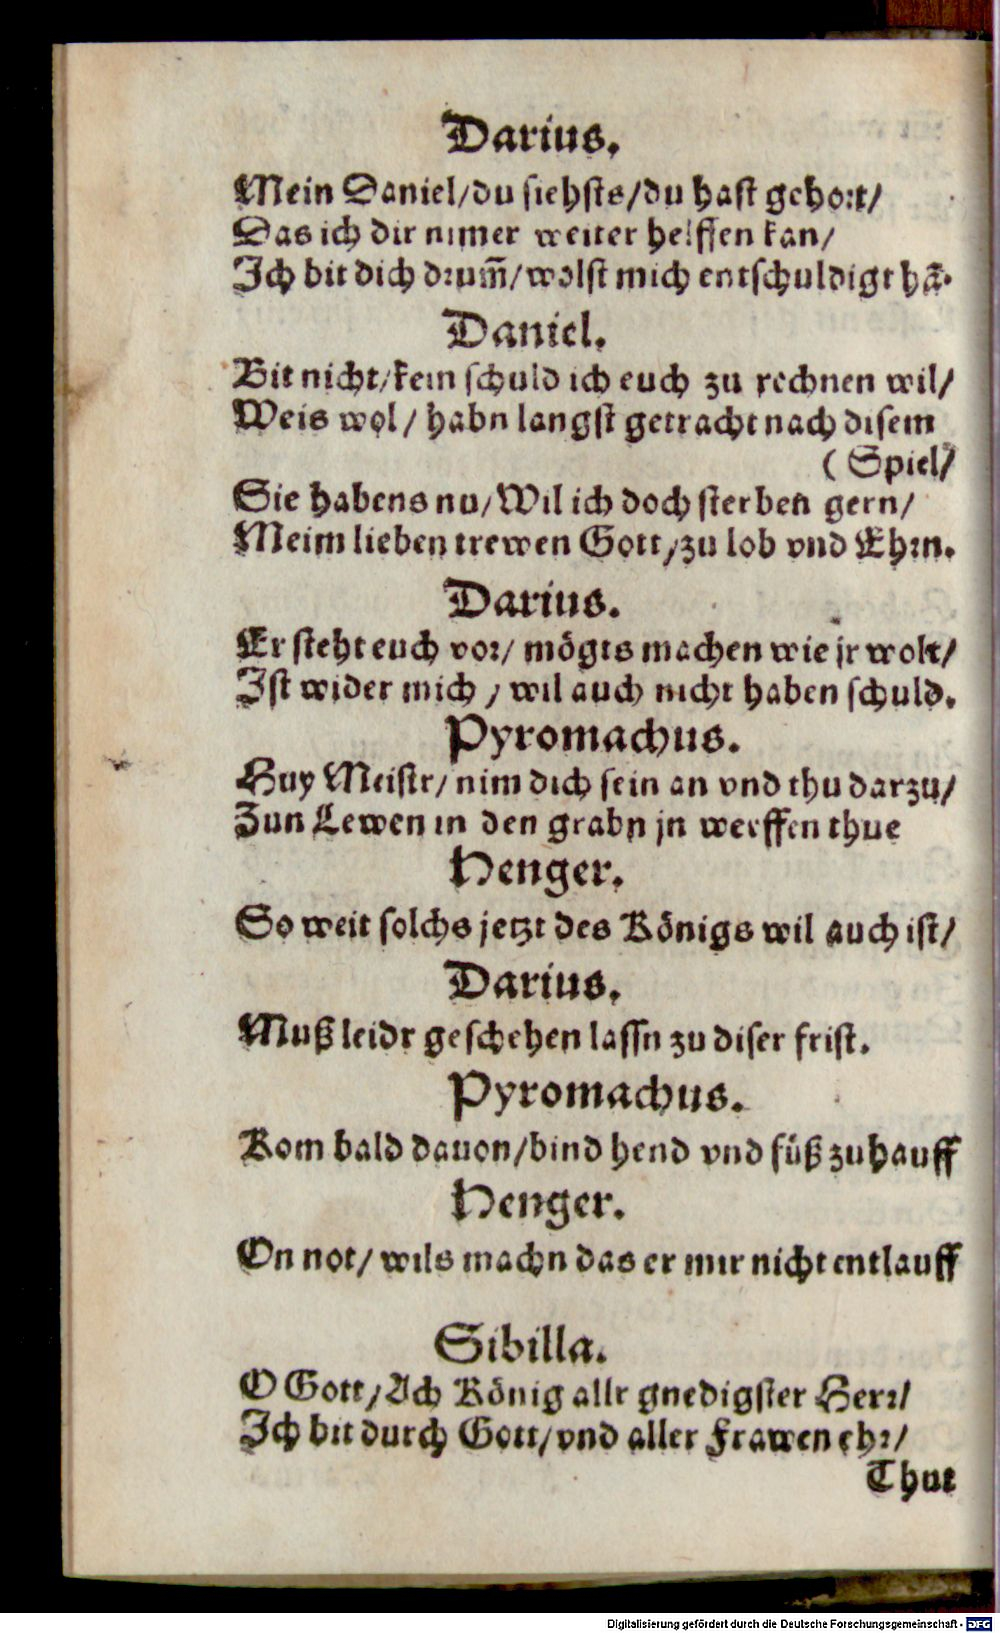 Darius.
Mein Daniel/du siehsts/du hast gehort/
Das ich dir nimer weiter helffen kan/
Ich bit dich drum̃/wolst mich entschuldigt hā.
Daniel.
Bit nicht/kein schuld ich euch zu rechnen wil/
Weis wol/ habn langst getracht nach disem
( Spiel/
Sie habens nu/Wil ich doch sterben gern/
Meim lieben trewen Gott/zu lob vnd Ehrn.
Darius.
Er steht euch vor/ mögts machen wie jr wolt/
Ist wider mich / wil auch nicht haben schuld.
Pyromachus.
Huy Meistr/ nim dich sein an vnd thu darzu/
Zun Lewen in den grabn jn werffen thue
Henger.
So weit solchs jetzt des Königs wil auch ist/
Darius.
Muß leidr geschehen lassn zu diser frist.
Pyromachus.
Kom bald dauon/bind hend vnd füß zuhauff
Henger.
On not/ wils machn das er mir nicht entlauff
Sibilla.
O Gott/Ach König allr gnedigster Herr/
Ich bit durch Gott/vnd aller Frawen ehr/
Thut
Digitalisierung gefördert durch die Deutsche Forschungsgemeinschaft - DFG